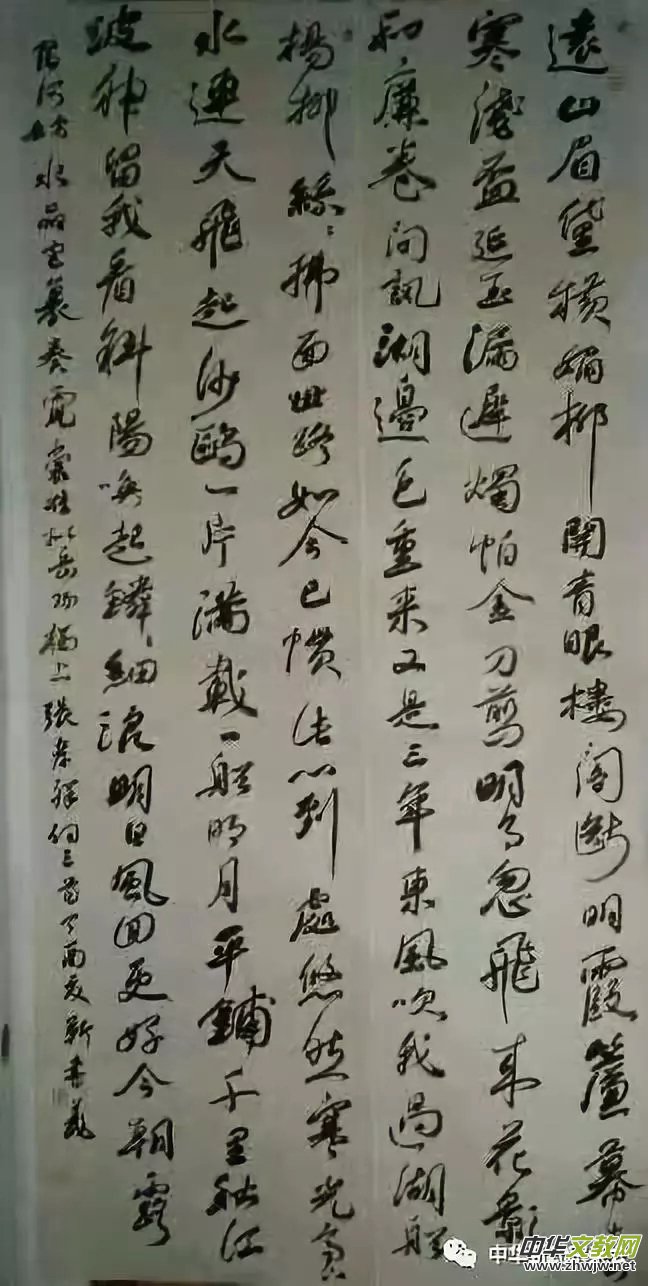 遠山眉黛橫媚柳開青眼樓閣斷明霞簾幕
寒淺盃延玉漏遲燭怕金刀剪明月忽飛来花影
和廉卷问訊湖邊色重来又是三年東風吹我過湖船
楊柳絲〻拂面世路如今已慣此心到處悠然寒光亭
水連天飛起沙鷗一片滿載一船明月平鋪千里秋江
波神留我看斜陽喚起鱗〻細浪明日風回更好今朝露
宿何妨水晶宮裏奏霓裳准拟岳陽樓上 張孝祥词三首丁酉夏新
中华
中华文教网
www.zhwjw.com